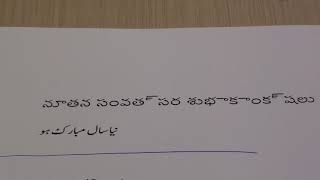 నూతన సంవత్సర శుభాకాంక్షలు
نیا سال مبارک ہو